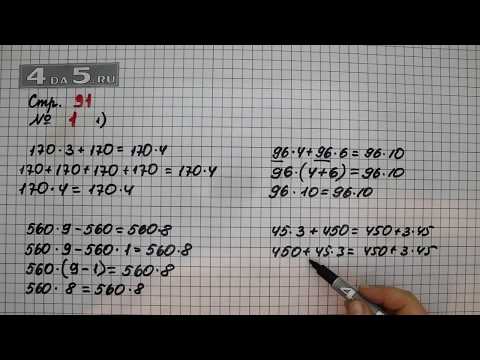 4DA5.RU
Стр. 91
№ 1 1)
170·3+170=170·4
170+170+170+170=170·4
170·4=170·4
560·9-560=560·8
560·9-560·1=560·8
560·(9-1)=560·8
560·8=560·8
96·4+96·6=96·10
96·(4+6)=96·10
96·10=96·10
45·3+450=450+3·45
450+45·3=450+3·45
4